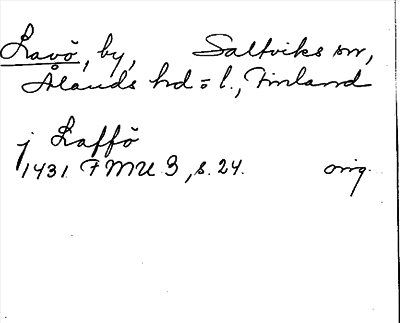 Lavö, by, Saltviks sn,
Ålands hd o l., Finland
j Laffö
1431 FMU 3, s. 24. orig.